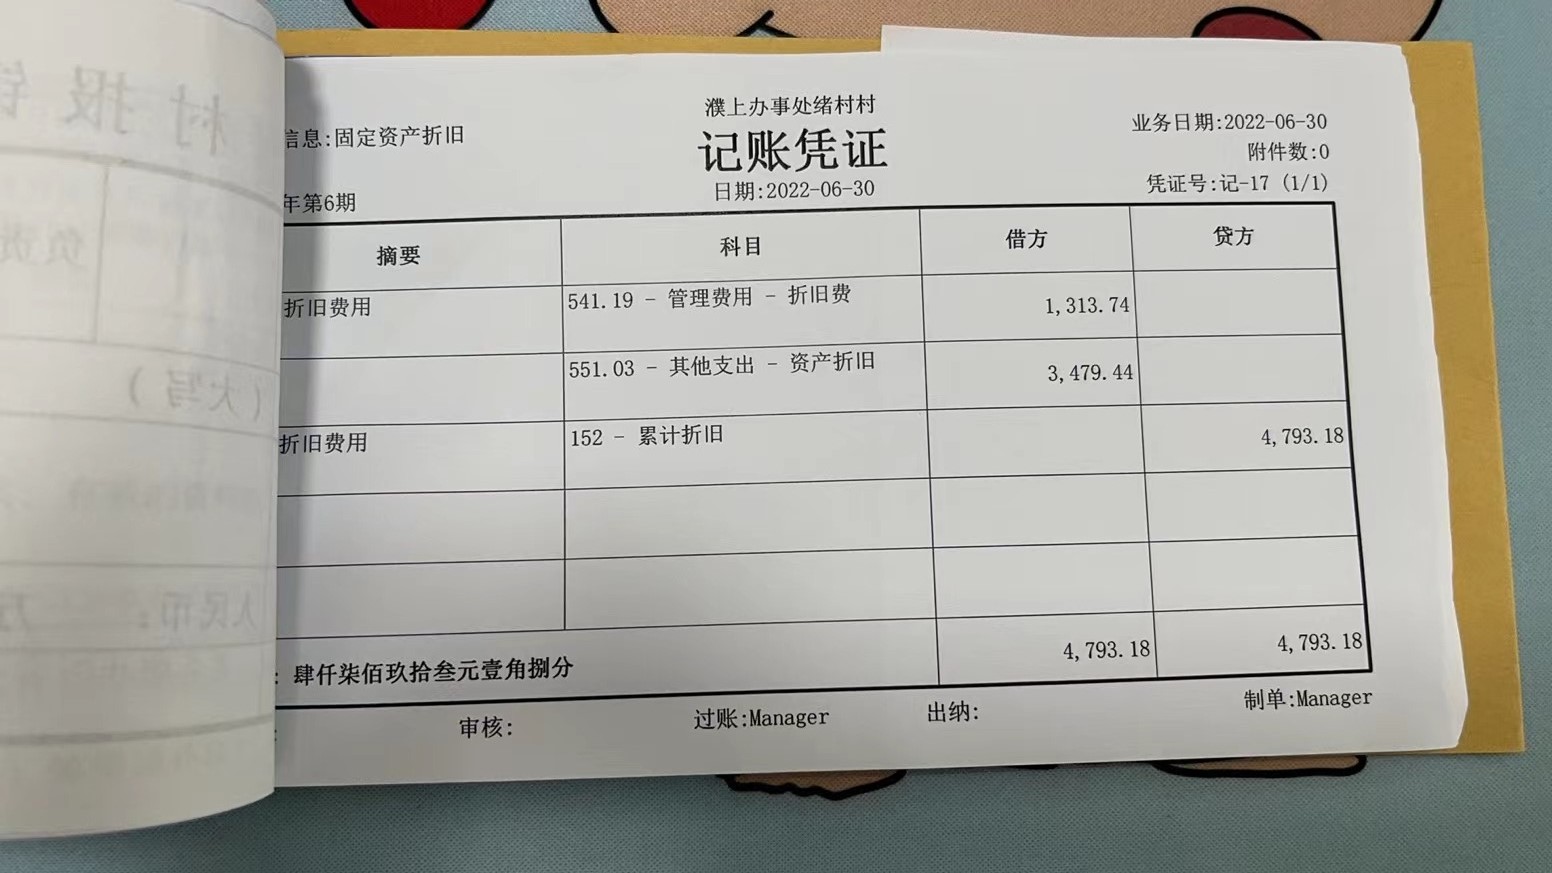 濮上办事处绪村村
信息:固定资产折旧
记账凭证
业务日期:2022-06-30
附件数:0
年第6期
日期:2022-06-30
凭证号:记-17 (1/1)
摘要 科目 借方 贷方
折旧费用 541.19 - 管理费用 - 折旧费 1,313.74
551.03 - 其他支出 - 资产折旧 3,479.44
折旧费用 152 - 累计折旧 4,793.18
: 肆仟柒佰玖拾叁元壹角捌分 4,793.18 4,793.18
审核: 过账:Manager 出纳: 制单:Manager
村报销
负责
(大写)
人民币: 万